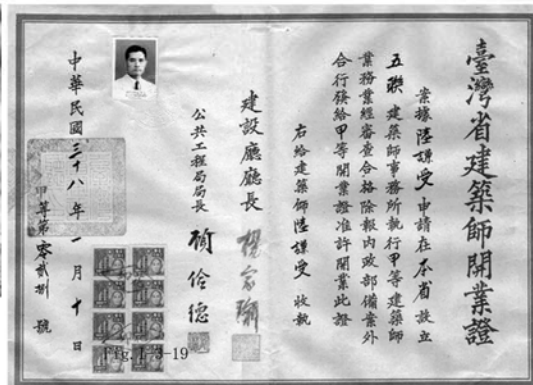 臺灣省建築師開業證
案據陸謙受申請在本省設立
五聯建築師事務所執行甲等建築師
業務業經審查合格除報內政部備案外
合行發給甲等開業證准許開業此證
右給建築師陸謙受收執
建設廳廳長 楊家瑜
公共工程局局長 顧倫德
中華民國三十八年一月十日
甲等第零貳捌號
Fig.1-3-19